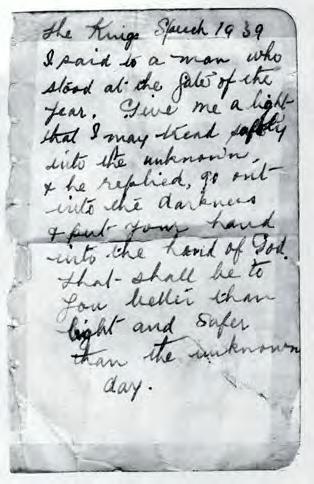 The Kings Speech 1939
I said to a man who
stood at the Gate of the
Year, Give me a light
that I may tread safely
into the unknown,
& he replied, go out
into the darkness
& put your hand
into the hand of God.
That shall be to
you better than
light and safer
than the unknown
day.